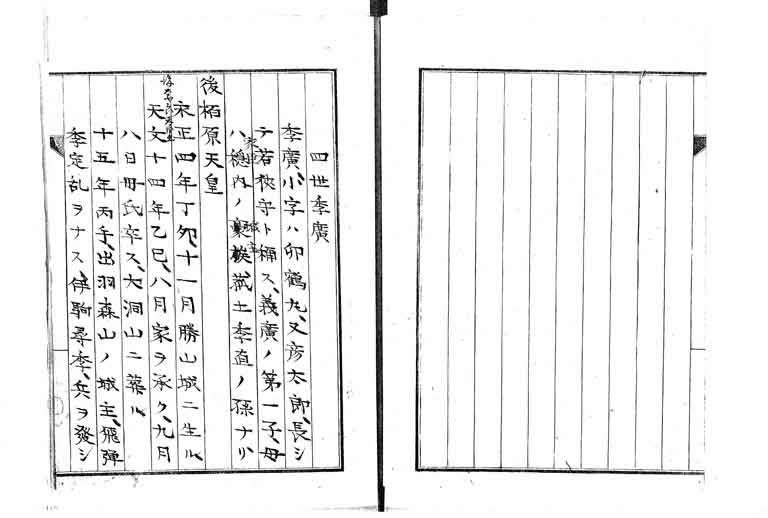 四世季廣
季廣、小字ハ卯鶴丸、又彦太郎、長シ
テ若狭守ト稱ス、義廣ノ第一子、母
ハ穏内ノ土季直ノ孫ナリ
後柏原天皇
永正四年丁夘、十一月勝山城ニ生ル
天文十四年乙巳、八月家ヲ承ク、九月
八日母氏卒ス、大洞山ニ葬ル
十五年丙午、出羽森山ノ城主、飛弾
季定乱ヲナス、伊駒尋季、兵ヲ發シ